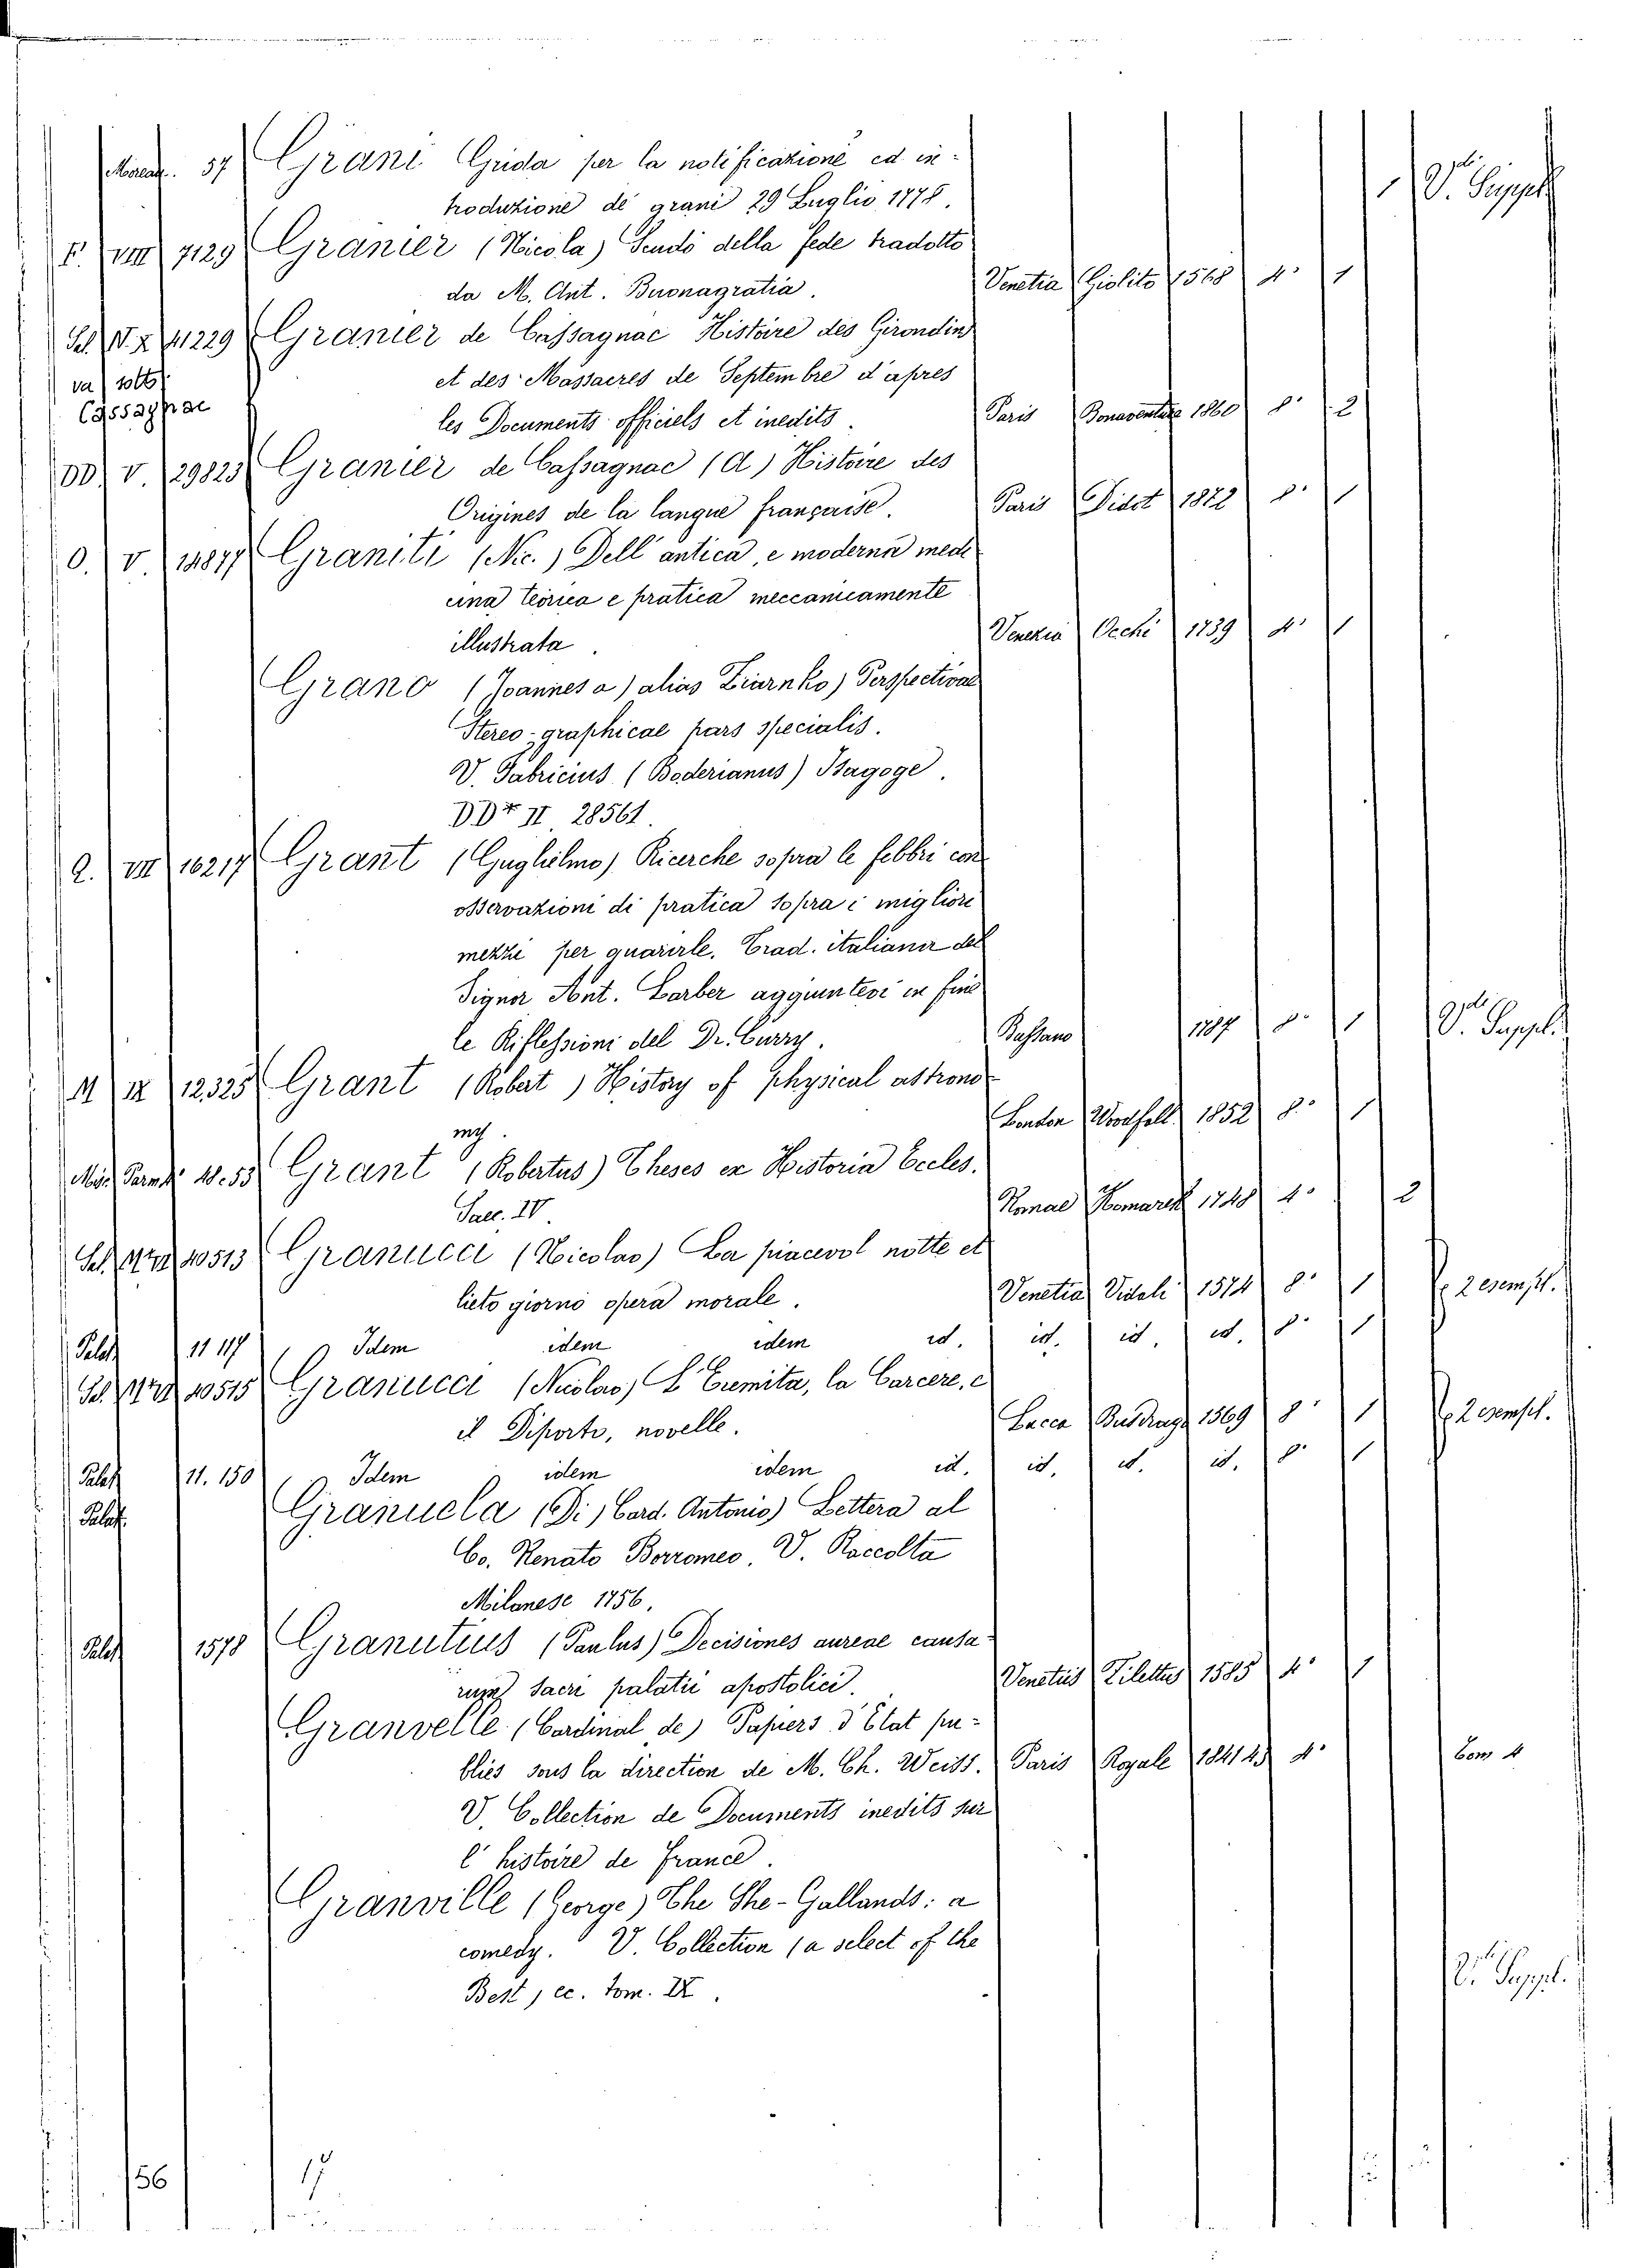 57 Grani Grida per la notificazione ed in-
troduzione de grani 29 Luglio 1778. V. Suppl
F. VIII 7129 Granier (Nicola) Scudo della fede tradotto
da M. Ant. Buonagratia. Venetia Giolito 1568 4° 1
41229 Granier de Cassagnac Histoire des Girondin
va sotto et des Massacres de Septembre d'apres
Cassagnac les Documents officiels et inedits. Paris Bonaventure 1860 8° 2
DD. V. 29823 Granier de Cassagnac (A) Histoire des
Origines de la langue française. Paris Didot 1872 8° 1
O. V. 14877 Graniti (Nic.) Dell' antica, e moderna medi
cina teorica e pratica meccanicamente
illustrata. Venezia Occhi 1739 4° 1
Grano (Joannes a) alias Ziarnko) Perspectivae
Stereo-graphicae pars specialis.
V. Fabricius (Boderianus) Isagoge.
DD* II 28561.
Q. VII 16217 Grant (Guglielmo) Ricerche sopra le febbri con
osservazioni di pratica sopra i migliori
mezzi per guarirle. Trad. italiana del
Signor Ant. Larber aggiuntevi in fine
le Riflessioni del Dr. Curry. Bassano 1787 8° 1 V. Suppl.
M IX 12325 Grant (Robert) History of physical astrono-
my. London Woodfall 1852 8° 1
Mis. 18.53 Grant (Robertus) Theses ex Historia Eccles.
Saec. IV. Romae Komarek 1748 4° 2
10513 Granucci (Nicolao) La piacevol notte et
lieto giorno opera morale. Venetia Vidali 1574 8° 1 2 esempl.
Palat 11 117 Idem idem idem id. id. id. id. 8° 1
10515 Granucci (Nicolao) L'Eremita, la Carcere, e
il Diporto, novelle. Lucca Busdrago 1569 8° 1 2 esempl.
Palat 11. 150 Idem idem idem id. id. id. id. 8° 1
Palat. Granuela (Di) Card. Antonio) Lettera al
Co. Renato Borromeo. V. Raccolta
Milanese 1756.
Palat 1578 Granutius (Paulus) Decisiones aureae causa-
rum sacri palatii apostolici. Venetiis Zilettus 1585 4° 1
Granvelle (Cardinal de) Papiers d'Etat pu-
bliés sous la direction de M. Ch. Weiss. Paris Royale 1841 43 4° Tom 4
V. Collection de Documents inedits sur
l' histoire de France.
Granville (George) The She-Gallands: a
comedy. V. Collection (a select of the
Best, ec. tom. IX. V. Suppl.
156 17